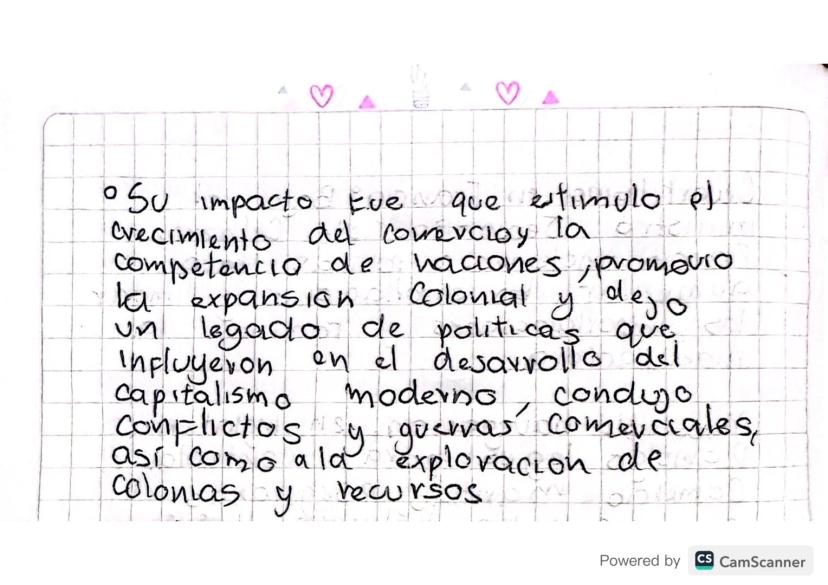 °Su impacto fue que estimulo el
crecimiento del comercio y la
competencia de naciones, promovio
la expansion Colonial y dejo
un legado de politicas que
influyeron en el desarrollo del
capitalismo moderno, condujo
conflictos y guerras comerciales,
así como a la exploracion de
colonias y recursos
Powered by CS CamScanner